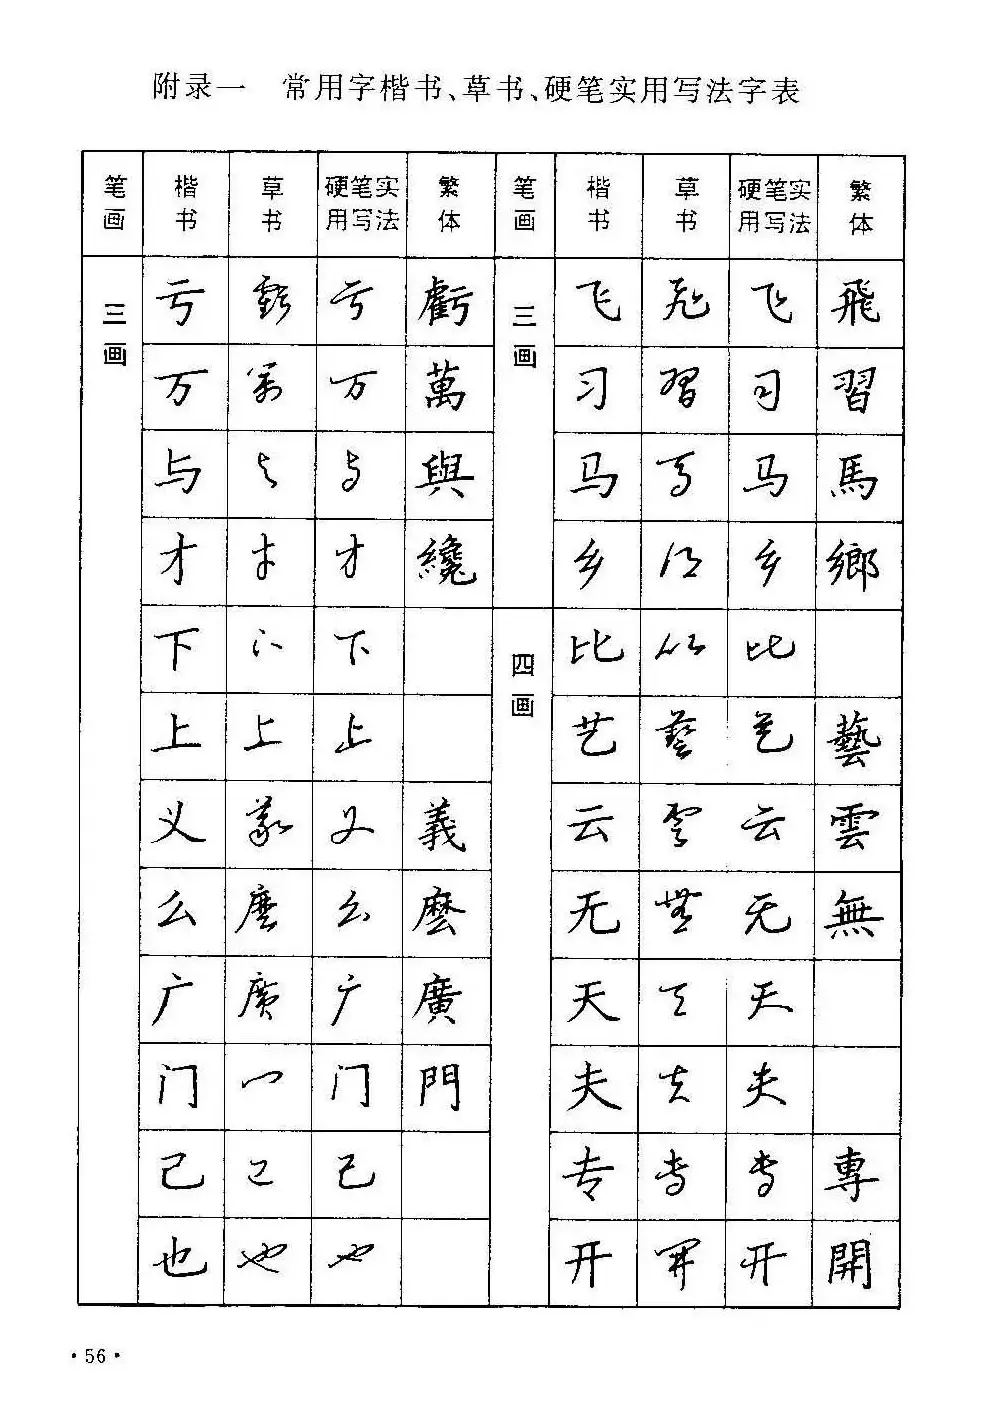 附录一 常用字楷书、草书、硬笔实用写法字表
笔画 楷书 草书 硬笔实用写法 繁体 笔画 楷书 草书 硬笔实用写法 繁体
三画 亏 亏 亏 虧 三画 飞 飞 飞 飛
万 万 万 萬 习 习 习 習
与 与 与 與 马 马 马 馬
才 才 才 纔 乡 乡 乡 鄉
下 下 下 四画 比 比 比
上 上 上 艺 艺 艺 藝
义 义 义 義 云 云 云 雲
么 么 么 麽 无 无 无 無
广 广 广 廣 天 天 天
门 门 门 門 夫 夫 夫
己 己 己 专 专 专 專
也 也 也 开 开 开 開
·56·